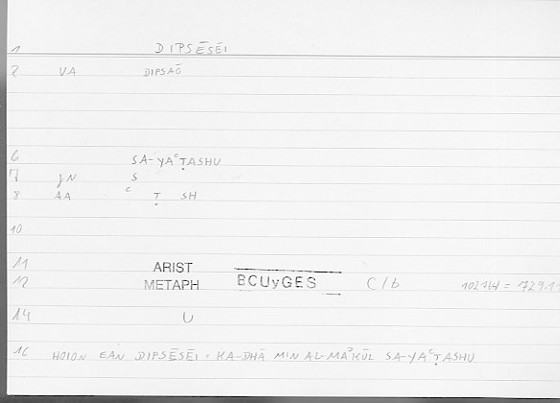 1 DIPSĒSĒI
2 VA DIPSAŌ
6 SA-YAᶜṬASHU
7 gN S
8 AA ᶜ Ṭ SH
10
11 ARIST
12 METAPH BCUyGES C/b
14 U
16 HOION EAN DIPSĒSĒI = KA-DHĀ MIN AL-MAʾKŪL SA-YAᶜṬASHU